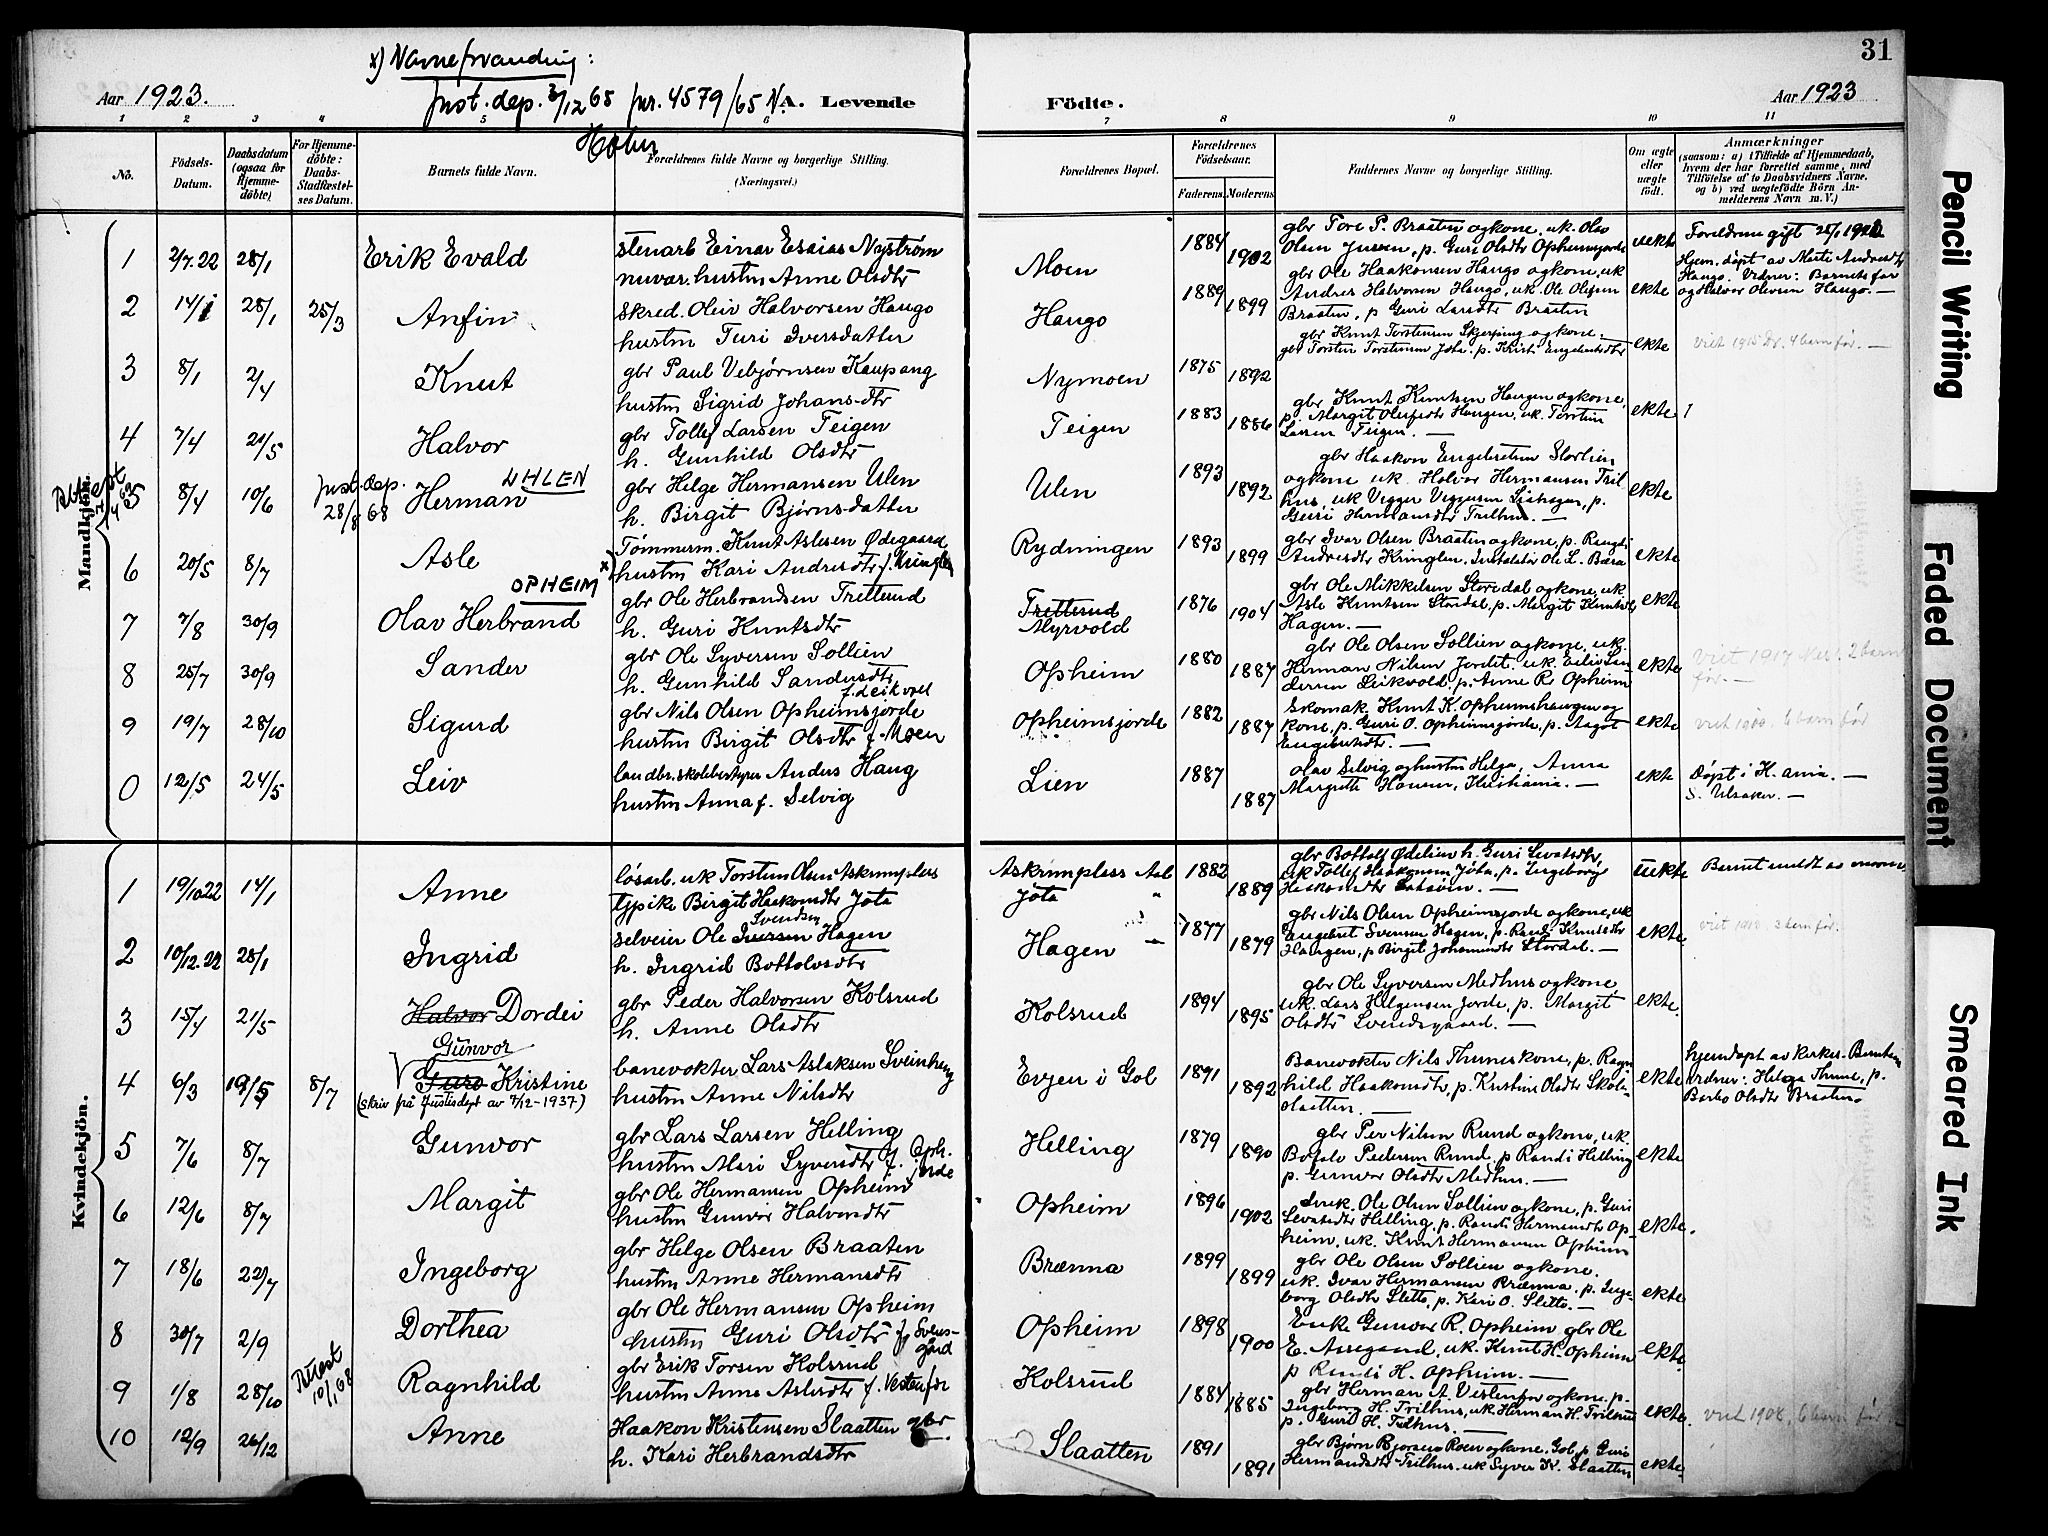 x) Navneforandring:
Aar 1923.
Just. dep. 3/12 65 nr. 4579/65 N.
A. Levende
Födte.
Aar 1923
31
1 2 3 4 5 6 7 8 9 10 11
No.
Födsels-Datum.
Daabsdatum (ogsaa for Hjemme-döbte)
For Hjemme-döbte: Daabs-Stadfæstel-ses Datum.
Barnets fulde Navn.
Forældrenes fulde Navne og borgerlige Stilling.
(Næringsvei.)
Forældrenes Bopæl.
Forældrenes Födselsaar.
Faderens. Moderens.
Faddernes Navne og borgerlige Stilling.
Om ægte eller uægte födt.
Anmærkninger
(saasom: a) i Tilfælde af Hjemmedaab, hvem der har forrettet samme, med Tilföielse af to Daabsvidners Navne, og b) ved uægtefödte Börn An-melderens Navn m. V.)
Mandkjön.
1 2/7.22 28/1 Erik Evald
stenarb Einar Esaias Nyström
nuvar. hustru Anne Olsdtr
Moen 1884 1902
gbr Tore P. Braaten og kone, uk. Olav
Olsen, p. Guri Olsdtr Opheimsjorde
uekte
Foreldrene gift
2 14/1 28/1 25/3 Anfin
Skred. Oleiv Halvorsen Haugo
hustru Turi Iversdatter
Haugo 1889 1899
gbr Ole Haakonsen Haugo og kone, uk
Andres Halvorsen Haugo, uk. Ole Olesen
Braaten, p Guri Larsdtr Braaten
ekte
Hjem. døpt av Marte Andresdtr
Haugo. Vidner: Barnets far
og Halvor Olevsen Haugo. —
3 8/1 2/4 Knut
gbr Paul Vebjørnsen Kaupang
hustru Sigrid Johansdtr
Nymoen 1875 1892
gbr Knut Torstensen og kone —
gbr Torsten Torstensen Jota. p. Kristi Engebretsdtr
ekte
viet 1915 4 barn før. —
4 7/4 21/5 Halvor
gbr Tollef Larsen Teigen
h. Gunhild Olsdtr
Teigen 1883 1886
gbr Knut Knutsen Haugen og kone,
p. Margit Haugen, uk. Torstein
Larsen Teigen. —
ekte
5 8/4 10/6 Just. dep. 28/8 68 Herman UHLEN
gbr Helge Hermansen Ulen
h. Birgit Bjørnsdatter
Ulen 1893 1892
gbr Haakon Engebretsen Storlien
og kone uk. Halvor Hermansen Tril
hus, uk Vigger Viggersen, p.
Guri Hermansdtr Trilhus. —
ekte
6 20/5 8/7 Asle
Tømmerm. Knut Aslesen Ødegaard
x) hustru Kari Andresdtr f. Kringlen
Rydningen 1893 1899
gbr Ivar Olsen Braaten og kone, p. Rangdi
Andresdtr Kringlen. Instalatør Ole L. Bæra
ekte
7 7/8 30/9 Olav Herbrand OPHEIM
gbr Ole Herbrandsen Tretterud
h. Guri Knutsdtr
Tretterud
Myrvold 1876 1904
gbr Ole Mikkelsen Stordal og kone, uk
Asle Knutsen Stordal, p. Margit Knutsdtr
Hagen. —
ekte
8 25/7 30/9 Sander
gbr Ole Syversen Sollien
h. Gunhild Sandersdtr
f. Leikvoll
Opheim 1880 1887
gbr Ole Olsen Sollien og kone, uk.
Herman Nilsen Jordet. uk. Eiliv San-
dersen Leikvold. p. Anne R. Opheim
ekte
viet 1917 Nes. 2 barn
før. —
9 19/7 28/10 Sigurd
gbr Nils Olsen Opheimsjorde
hustru Birgit Olsdtr f. Moen
Opheimsjorde 1882 1887
Skomak. Knut K. Opheimshaugen og
kone, p. Guri O. Opheimsjorde, p. Aagot
Engebretsdtr. —
ekte
6 barn før
0 12/5 24/5 Leiv
landbr.skolebestyrer Anders Haug
hustru Anna f. Selvig
Lien 1887 1887
Olav Selvig og hustru Helga, Anna
Margrethe Hansen, Kristiania. —
ekte
Døpt i K.ania. —
S. Ulsaker. —
Kvindekjön.
1 19/10 22 14/1 Anne
løsarb. uk Torsten Olsen Askrimplass
typike Birgit Haakonsdtr Jota
Askrimplass Aal
Jota 1882 1889
gbr Bottolf Ødelien h. Guri Sevatsdtr,
uk Tollef Haakonsen Jota, p. Ingeborg
Haakonsdtr —
uekte
Barnet meldt av moren
2 10/12.22 28/1 Ingrid
Svendsen
selveier Ole Iversen Hagen
h. Ingrid Bottolvsdtr
Hagen 1877 1879
gbr Nils Olsen Opheimsjorde og kone, uk
Engebret Svensen Hagen, p. Randi Knutsdtr
Haugen, p Birgit Johannesdtr Stordal. —
ekte
3 barn før.
3 15/4 21/5 Halvor Dordei
gbr Peder Halvorsen Kolsrud
h. Anne Olsdtr
Kolsrud 1894 1895
gbr Ole Syversen Medhus og kone,
uk. Lars Helgensen Jorde, p. Margit
Olsdtr Svendsgaard. —
ekte.
4 6/3 19/5 8/7 Gunvor
Guro Kristine
(skriv fra Justisdept av 7/12-1937)
banevokter Lars Aslaksen Sveinhaug
hustru Anne Nilsdtr
Evjen i Gol 1891 1892
Banevokter Nils Thunes kone, p. Ragn
hild Haakonsdtr, p. Kristine Olsdtr Skola-
slaatten. —
ekte
hjemdøpt av
vidner: Helga Thune, p.
Barbo Olsdtr Braaten
5 7/6 8/7 Gunvor
gbr Lars Larsen Helling
hustru Mari Syversdtr f. Oph.
jorde
Helling 1879 1890
gbr Per Nilsen Rund og kone, uk.
Botolv Pedersen Rund, p Randi Helling
p. Gunvor Olsdtr Medhus. —
ekte
6 12/6 8/7 Margit
gbr Ole Hermansen Opheim
hustru Gunvor Halvorsdtr
Opheim 1896 1902
Ole Olsen Sollien og kone, p. Guri
Sevatsdtr Helling, p. Randi Hermansdtr Op-
heim, uk. Knut Hermansen Opheim
ekte.
7 18/6 22/7 Ingeborg
gbr Helge Olsen Braaten
hustru Anne Hermansdtr
Brænna 1899 1899
gbr Ole Olsen Sollien og kone.
uk. Ivar Hermansen Brænna. p. Inge-
borg Olsdtr Sletto, p. Kari O. Sletto. —
ekte
8 30/7 2/9 Dorthea
gbr Ole Hermansen Opheim
hustru Guri Olsdtr f. Svens-
gård
Opheim 1898 1900
Enke Gunvor R. Opheim gbr Ole
E. uk. Knut H. Opheim
p Randi H. Opheim. —
ekte.
9 1/8 28/10 Attest 10/1 68 Ragnhild
gbr Erik Torsen Kolsrud
hustru Anne Aslesdtr f. Vestenfor
Kolsrud 1884 1885
gbr Herman A. Vestenfor og kone, p.
Ingeborg H. Trilhus, uk. Herman H. Trilhus
p. Guri H. Trilhus. —
ekte.
viet 1908, 6 barn før
10 12/9 26/12 Anne
Haakon Kristensen Slaatten gbr.
h. Kari Herbrandsdtr
Slaatten 1891 1891
gbr Bjørn Bjørnsen Roen og kone, Gol, p Guri
Hermandsdtr Trilhus. uk Syver K. Slaatten
ekte.
Pencil Writing
Faded Document
Smeared Ink